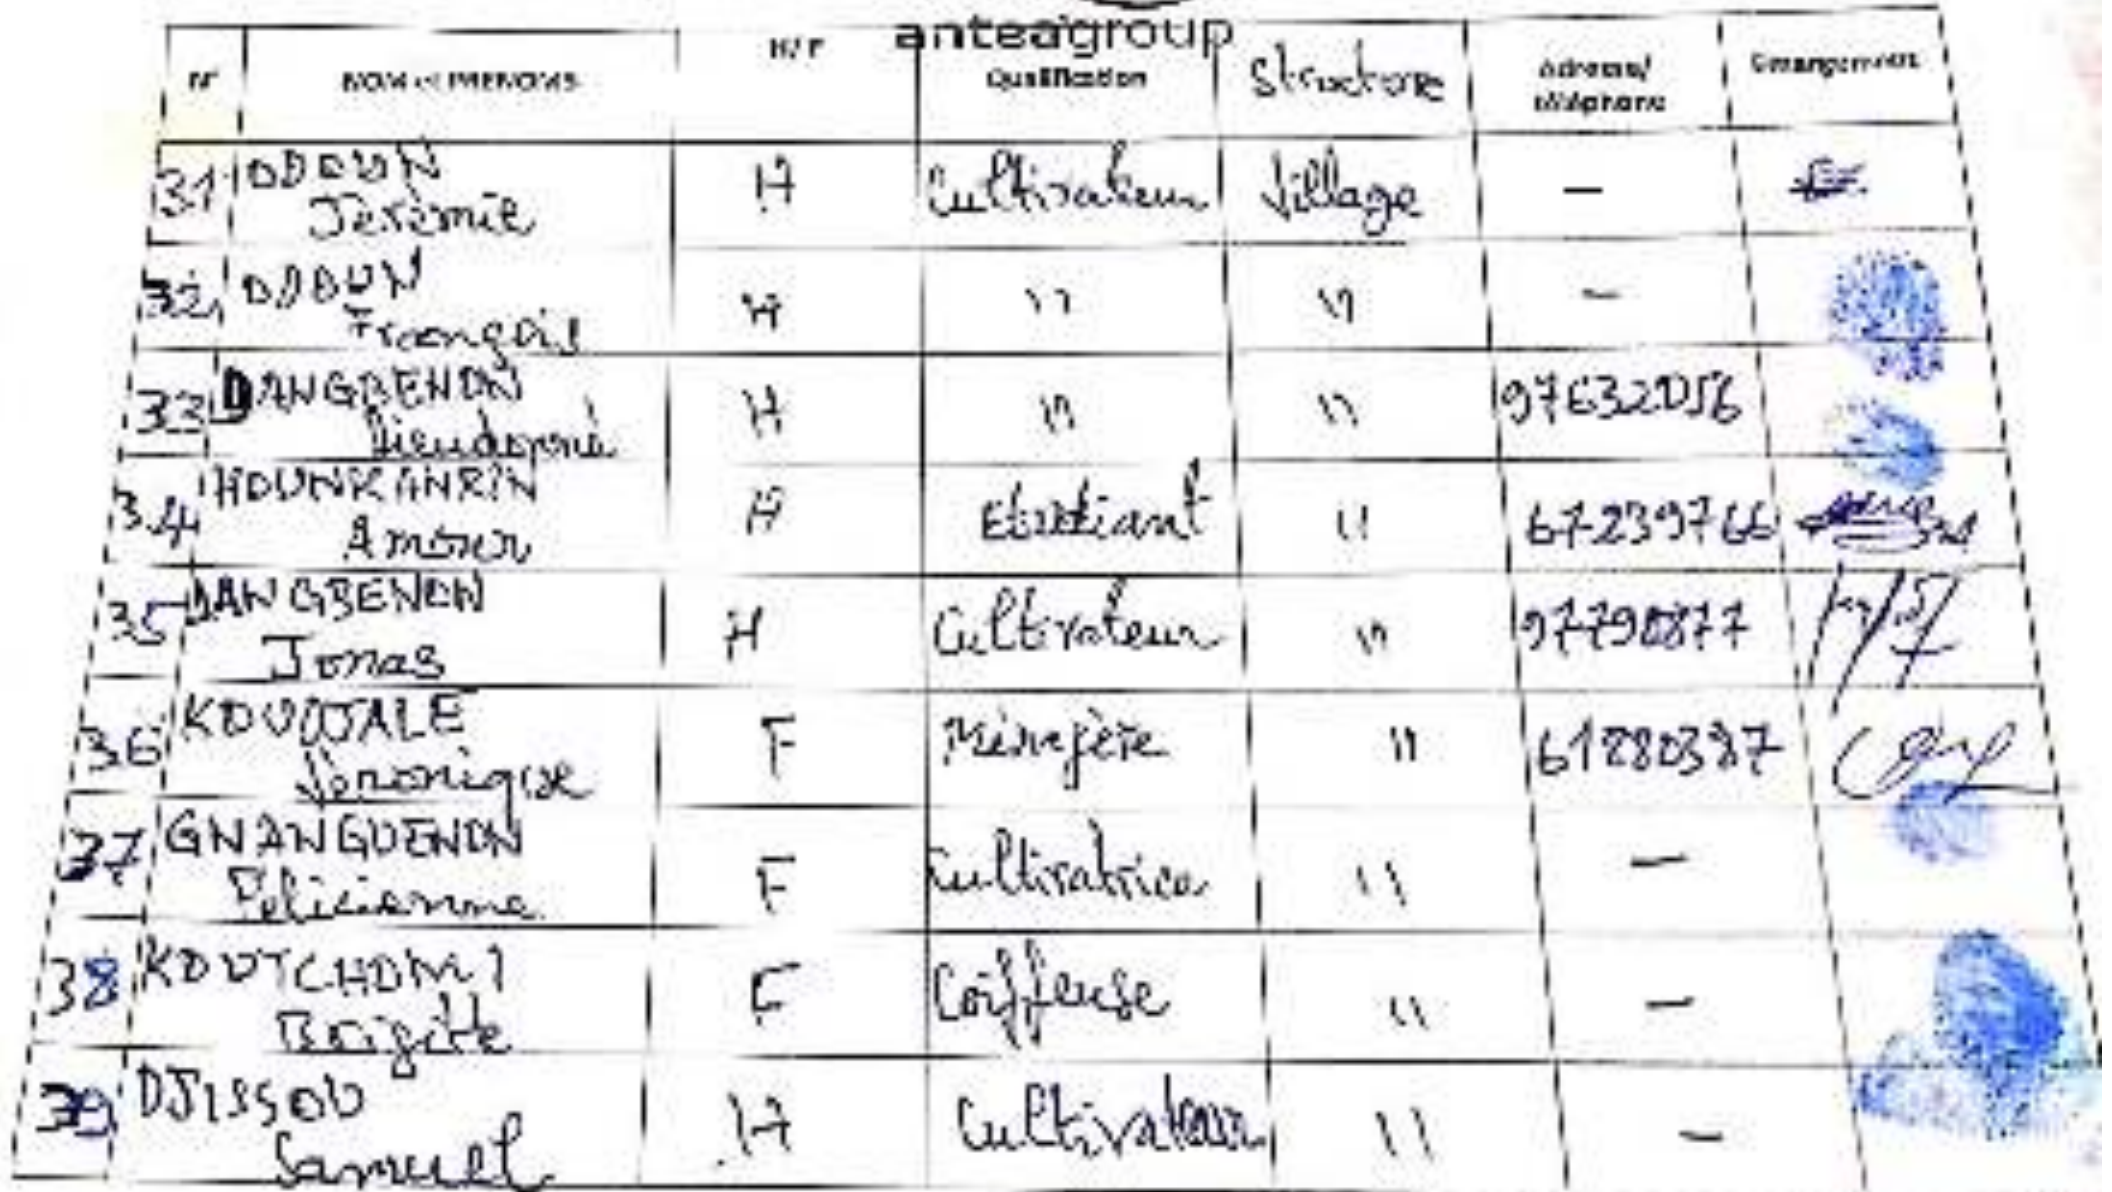 anteagroup
N° NOM et PRENOMS H/F Qualification Structure Adresse/ téléphone Emargements
31 ODOUN Jérémie H Cultivateur Village —
32 ODOUN François H " " —
33 DANGBENON Dieudonné H " " 97632056
34 HOUNKANRIN Amour H Etudiant " 67239766
35 DANGBENON Jonas H Cultivateur " 97790877
36 Véronique F Ménagère " 61880397
37 GNANGUENON Félicienne F Cultivatrice " —
38 KOUTCHOMI Brigitte F Coiffeuse " —
39 DJISSOU Samuel H Cultivateur " —